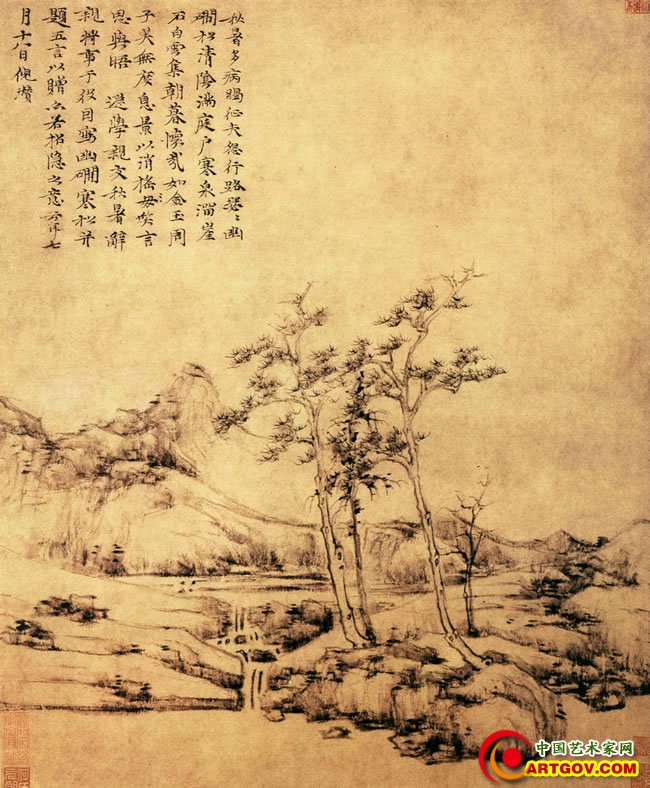 秋暑多病暍征夫怨行路瑟〻幽
磵松清陰滿庭户寒泉溜崖
石白雲集朝暮懷哉如金玉周
子美無度息景以消搖笑言
思與晤 遜學親友秋暑辭
親將事于役因寫幽磵寒松并
題五言以贈亦若招隱之意云耳七
月十八日倪瓚
中国艺术家网
ARTGOV.COM